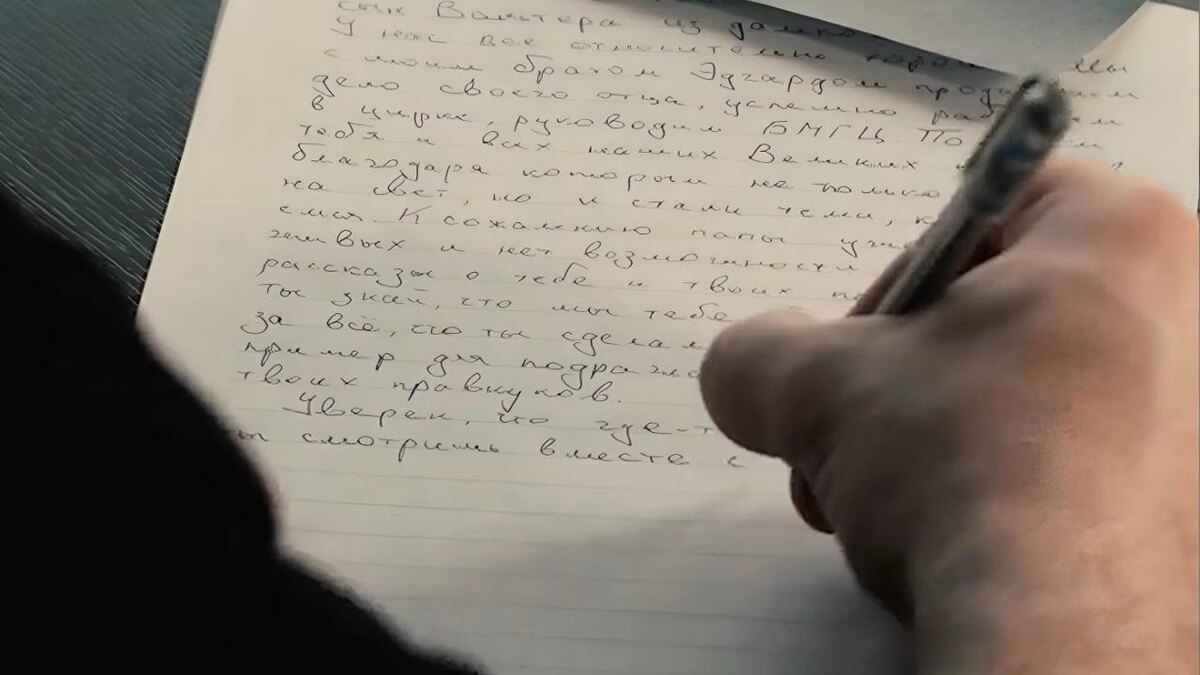 сын Вальтера из далё
У нас все относительно хорош Мы
с моим братом Эдгардом продолжаем
дело своего отца, успешно работаем
в цирке, руководим БМГЦ. Помним
тебя и всех наших Великих
благодаря которым не только
на свет, но и стали теми, к
смы. К сожалению папы уже
живых и нет возможности
рассказы о тебе и твоих
ты знай, что мы тебе
за всё, что ты сделал
пример для подража
твоих правнуков.
Уверен, что где-т
ты смотришь вместе с